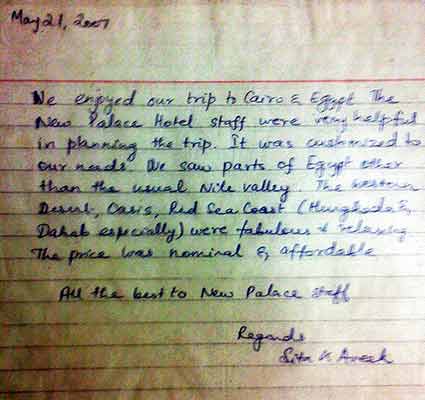 May 21, 2007
We enjoyed our trip to Cairo & Egypt The
New Palace Hotel staff were very helpful
in planning the trip. It was customized to
our needs. We saw parts of Egypt other
than the usual Nile valley. The western
Desert, Oasis, Red Sea Coast (Hurghada &
Dahab especially) were fabulous & relaxing
The price was nominal & affordable
All the best to New Palace staff
Regards
Sita &